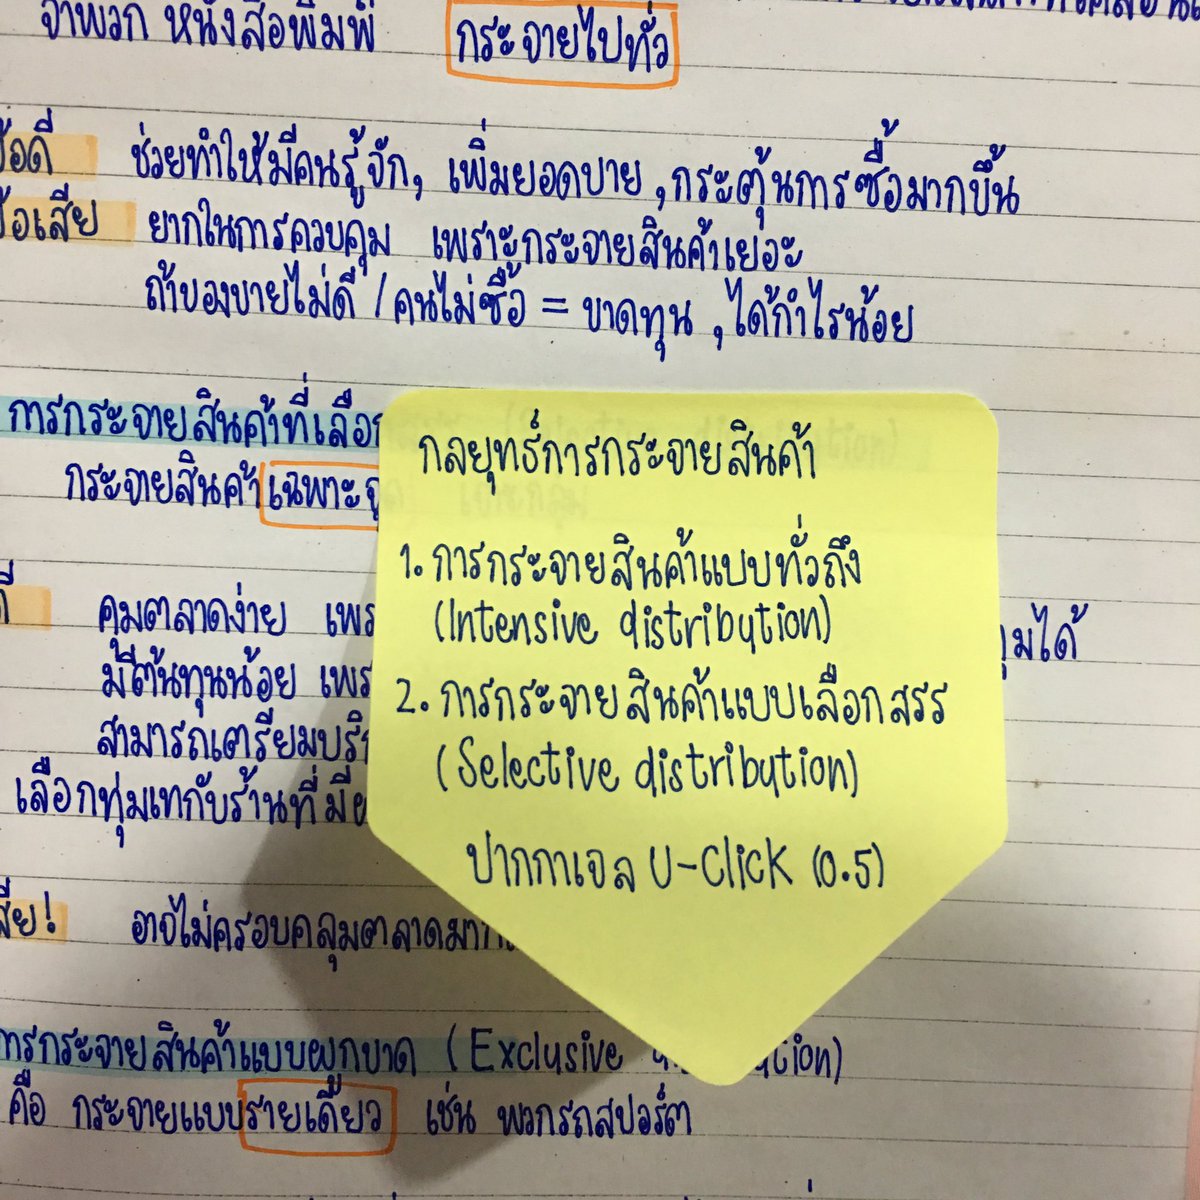 จำพวก หนังสือพิมพ์ กระจายไปทั่ว
ข้อดี ช่วยทำให้มีคนรู้จัก, เพิ่มยอดขาย, กระตุ้นการซื้อมากขึ้น
ข้อเสีย ยากในการควบคุม เพราะกระจายสินค้าเยอะ
ถ้าของขายไม่ดี / คนไม่ซื้อ = ขาดทุน, ได้กำไรน้อย
การกระจายสินค้าที่เลือก
กระจายสินค้าเฉพาะจุ
คุมตลาดง่าย เพร ุมได้
มีต้นทุนน้อย เพร
สามารถเตรียมบริ
เลือกทุ่มเทกับร้านที่มี
สีย! อาจไม่ครอบคลุมตลาดมาก
การกระจายสินค้าแบบผูกขาด (Exclusive ution)
คือ กระจายแบบรายเดียว เช่น พวกรถสปอร์ต
กลยุทธ์การกระจายสินค้า
1. การกระจายสินค้าแบบทั่วถึง
(Intensive distribution)
2. การกระจายสินค้าแบบเลือกสรร
(Selective distribution)
ปากกาเจล U-Click (0.5)